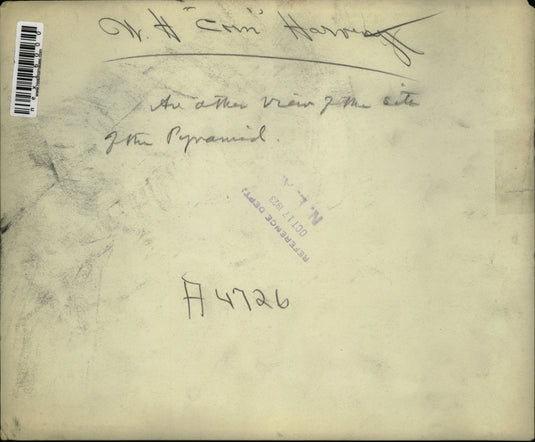 W. H "Coin" Harvey
An other view of the site
of the Pyramid.
REFERENCE DEPT.
OCT 17 1923
N. E. A.
A 4726